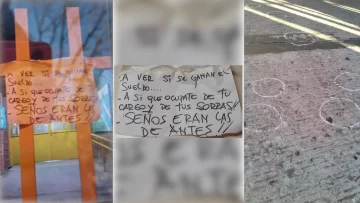 A VER SI SE GANAN EL
SUELDO....
- A SI QUE OCUPATE DE TU
CARGO Y DE TUS SORRAS//
- SEÑOS ERAN LAS
DE ANTES//
A VER SI SE GANAN EL
SUELDO....
- A SI QUE OCUPATE DE TU
CARGO Y DE TUS SORRAS//
- SEÑOS ERAN LAS
DE ANTES //